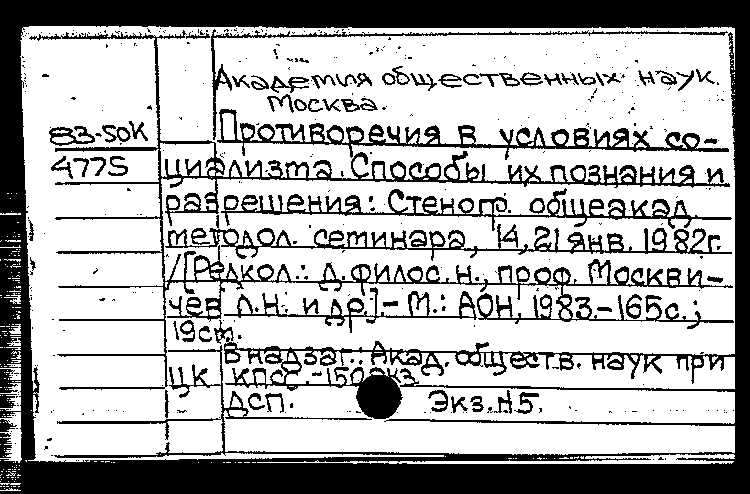 Академия общественных наук.
Москва.
83-50К
4775
Противоречия в условиях со-
циализма. Способы их познания и
разрешения: Стеногр. общеакад.
методол. семинара, 14,21 янв. 1982г.
/[Редкол.: д.филос.н., проф. Москви-
чев Л.Н. и др.].- М.: АОН, 1983.-165с.;
19см.
В надзаг.: Акад. обществ. наук при
ЦК КПСС.-150экз.
ДСП. Экз.№5.